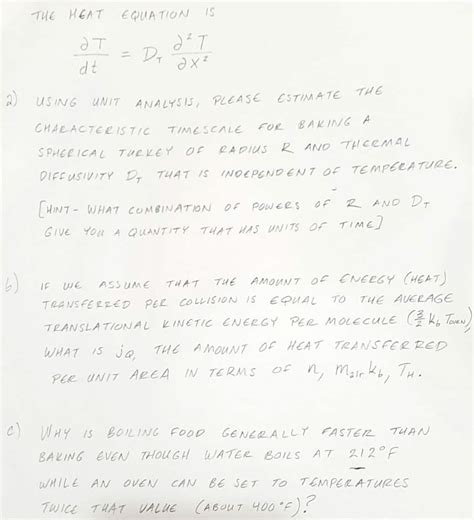 THE HEAT EQUATION IS
∂T/dt = D_T ∂²T/∂x²
a) USING UNIT ANALYSIS, PLEASE ESTIMATE THE
CHARACTERISTIC TIMESCALE FOR BAKING A
SPHERICAL TURKEY OF RADIUS R AND THERMAL
DIFFUSIVITY D_T THAT IS INDEPENDENT OF TEMPERATURE.
[HINT - WHAT COMBINATION OF POWERS OF R AND D_T
GIVE YOU A QUANTITY THAT HAS UNITS OF TIME]
b) IF WE ASSUME THAT THE AMOUNT OF ENERGY (HEAT)
TRANSFERRED PER COLLISION IS EQUAL TO THE AVERAGE
TRANSLATIONAL KINETIC ENERGY PER MOLECULE (3/2 k_b T_OVEN)
WHAT IS j_Q, THE AMOUNT OF HEAT TRANSFERRED
PER UNIT AREA IN TERMS OF n, m_air, k_b, T_H.
c) WHY IS BOILING FOOD GENERALLY FASTER THAN
BAKING EVEN THOUGH WATER BOILS AT 212°F
WHILE AN OVEN CAN BE SET TO TEMPERATURES
TWICE THAT VALUE (ABOUT 400°F)?